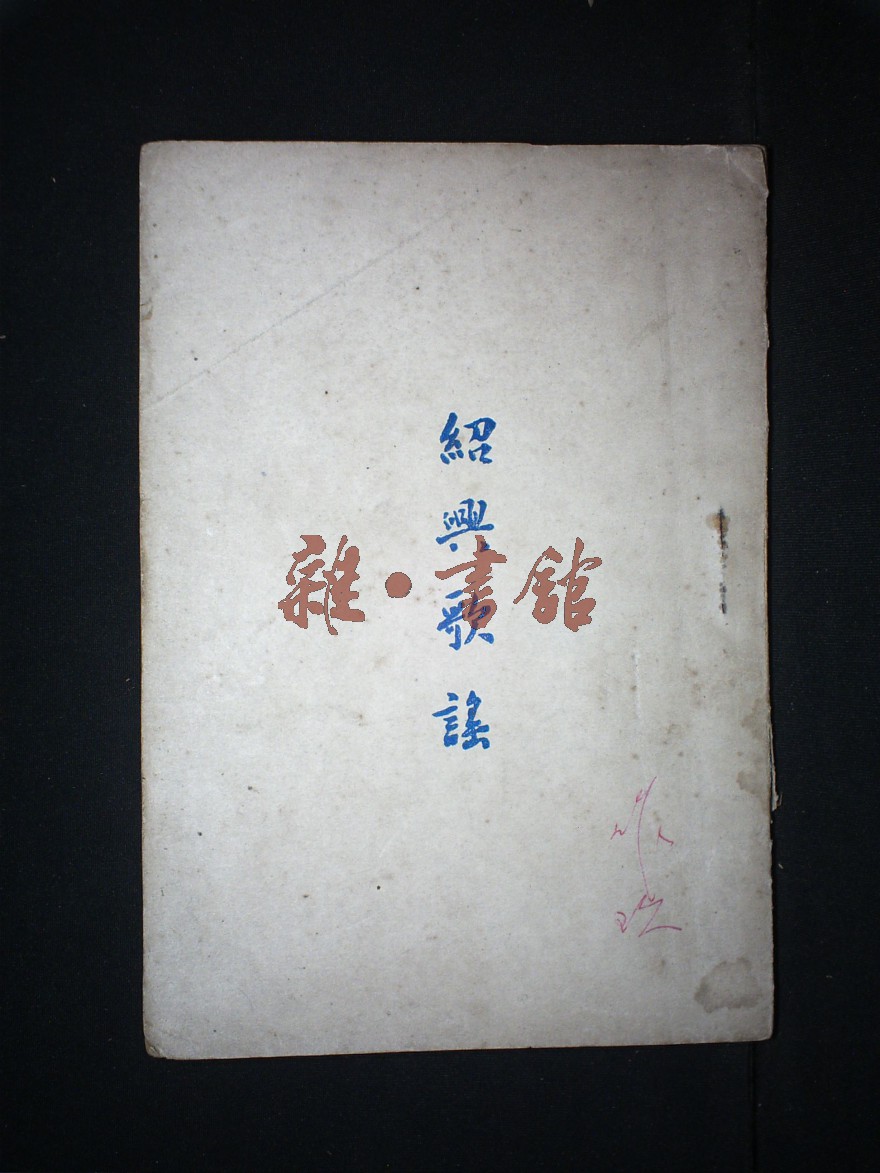 紹興歌謠
雜•書館